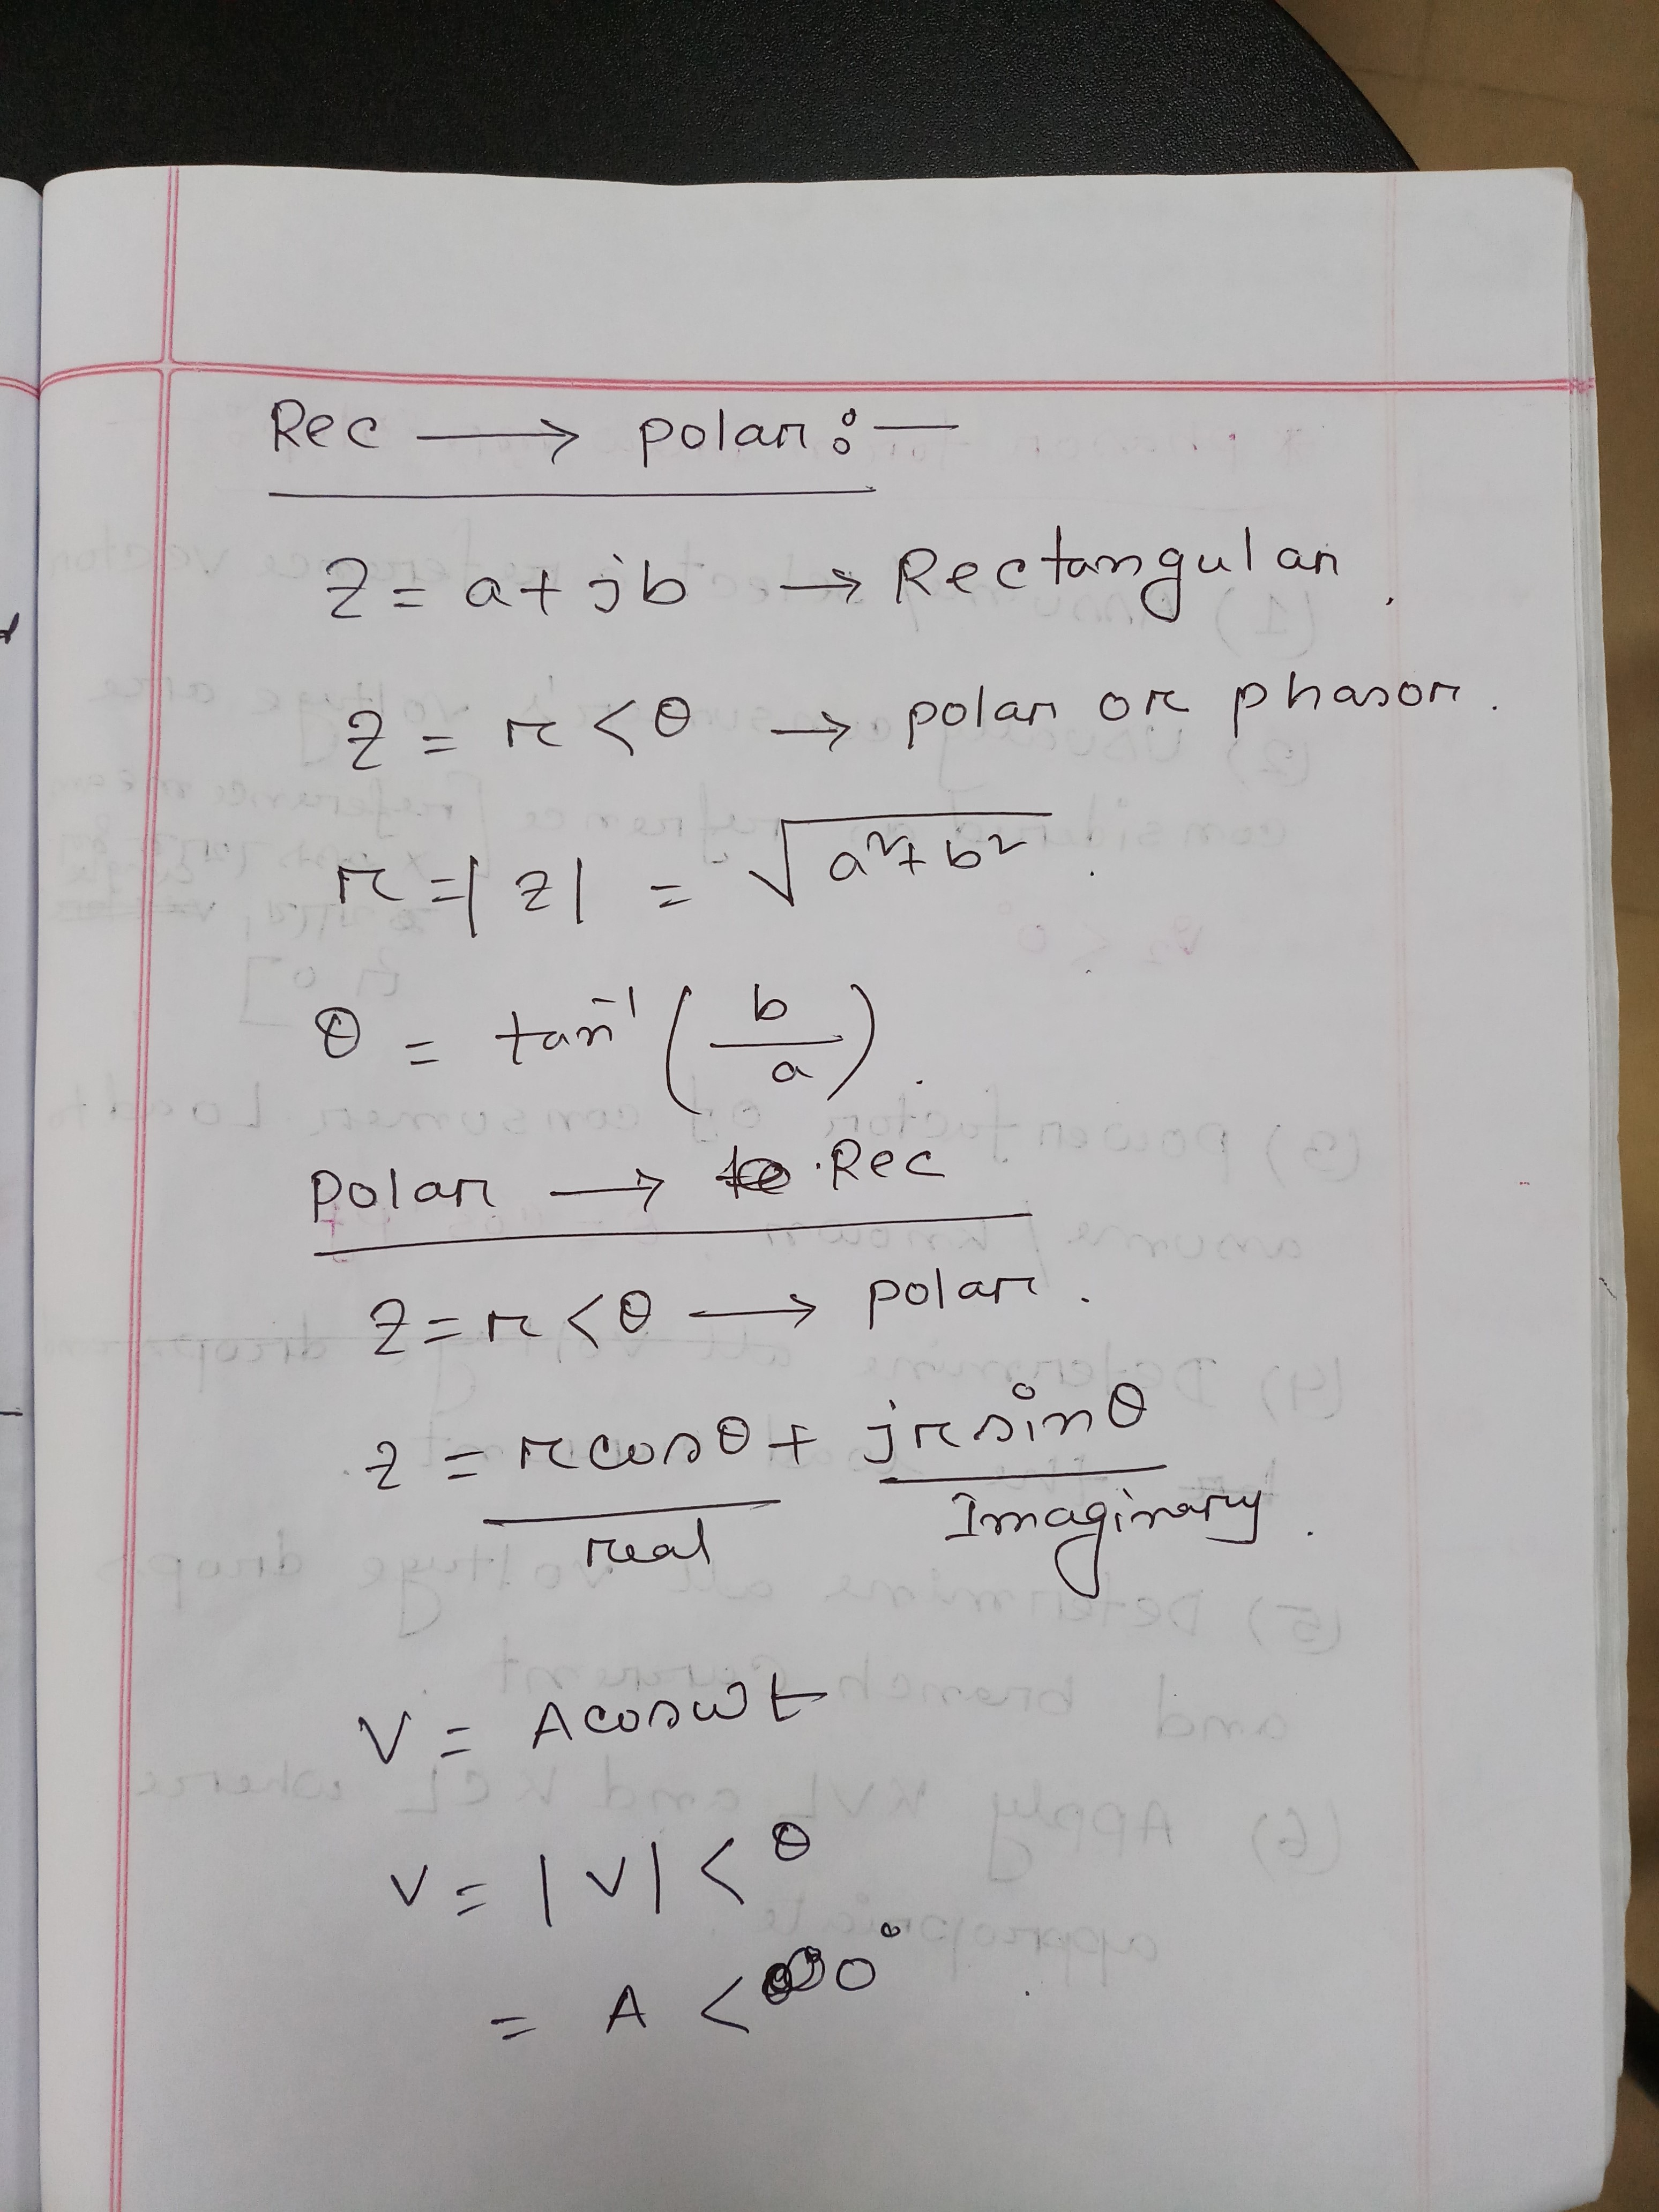 Rec → polar :-
Z = a + jb → Rectangular.
Z = r < θ → polar or phasor.
r = |z| = √(a² + b²).
θ = tan⁻¹ (b/a).
Polar → Rec
Z = r < θ → polar.
Z = r cosθ + jr sinθ
real Imaginary.
V = A cosωt
V = |V| < θ
= A < 0°